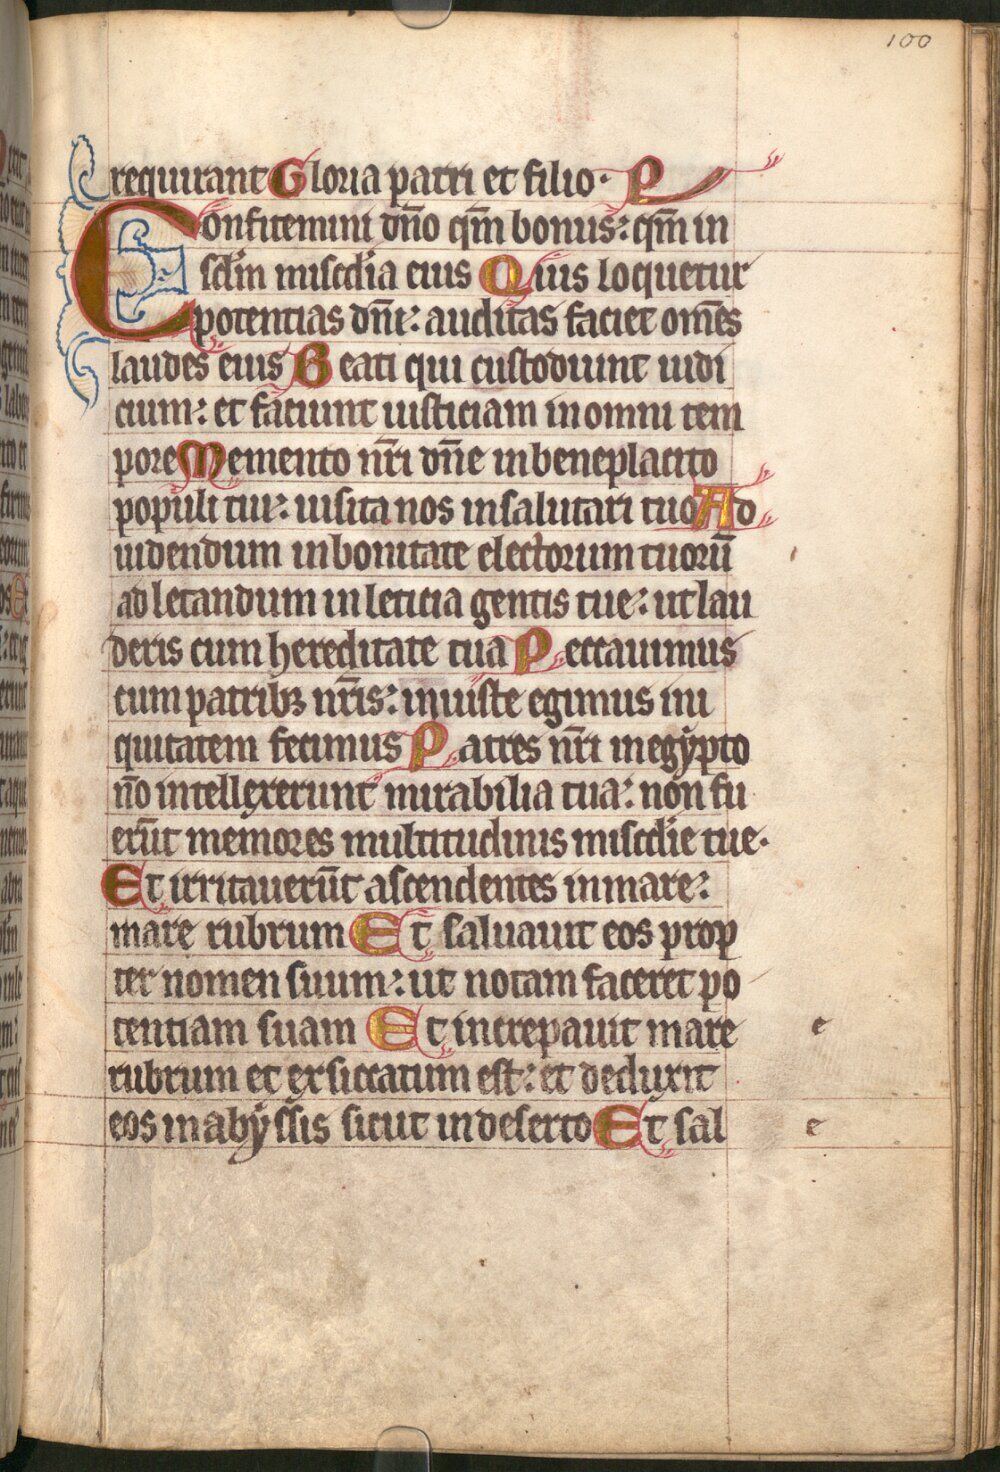 100
requirant Gloria patri et filio· P
Confitemini dn̄o qm̄ bonus: qm̄ in
sclm̄ miscđia eius Quis loquetur
potentias dn̄i: auditas faciet omēs
laudes eius Beati qui custodiunt iudi
cium: et faciunt iusticiam in omni tem
pore Memento nr̄i dn̄e in beneplacito
populi tui: uisita nos in salutari tuo Ad
uidendum in bonitate electorum tuorū
ad letandum in leticia gentis tue: ut lau
deris cum hereditate tua Peccauimus
cum patribꝫ nr̄is: iniuste egimus ini
quitatem fecimus Patres nr̄i in egẏpto
nō intellexerunt mirabilia tua: non fu
erūt memores multitudinis miscđie tue·
Et irritauerūt ascendentes in mare:
mare rubrum Et saluauit eos prop
ter nomen suum: ut notam faceret po
tentiam suam Et increpauit mare
e
rubrum et exsiccatum est: et deduxit
eos in abẏssis sicut in deserto Et sal
e